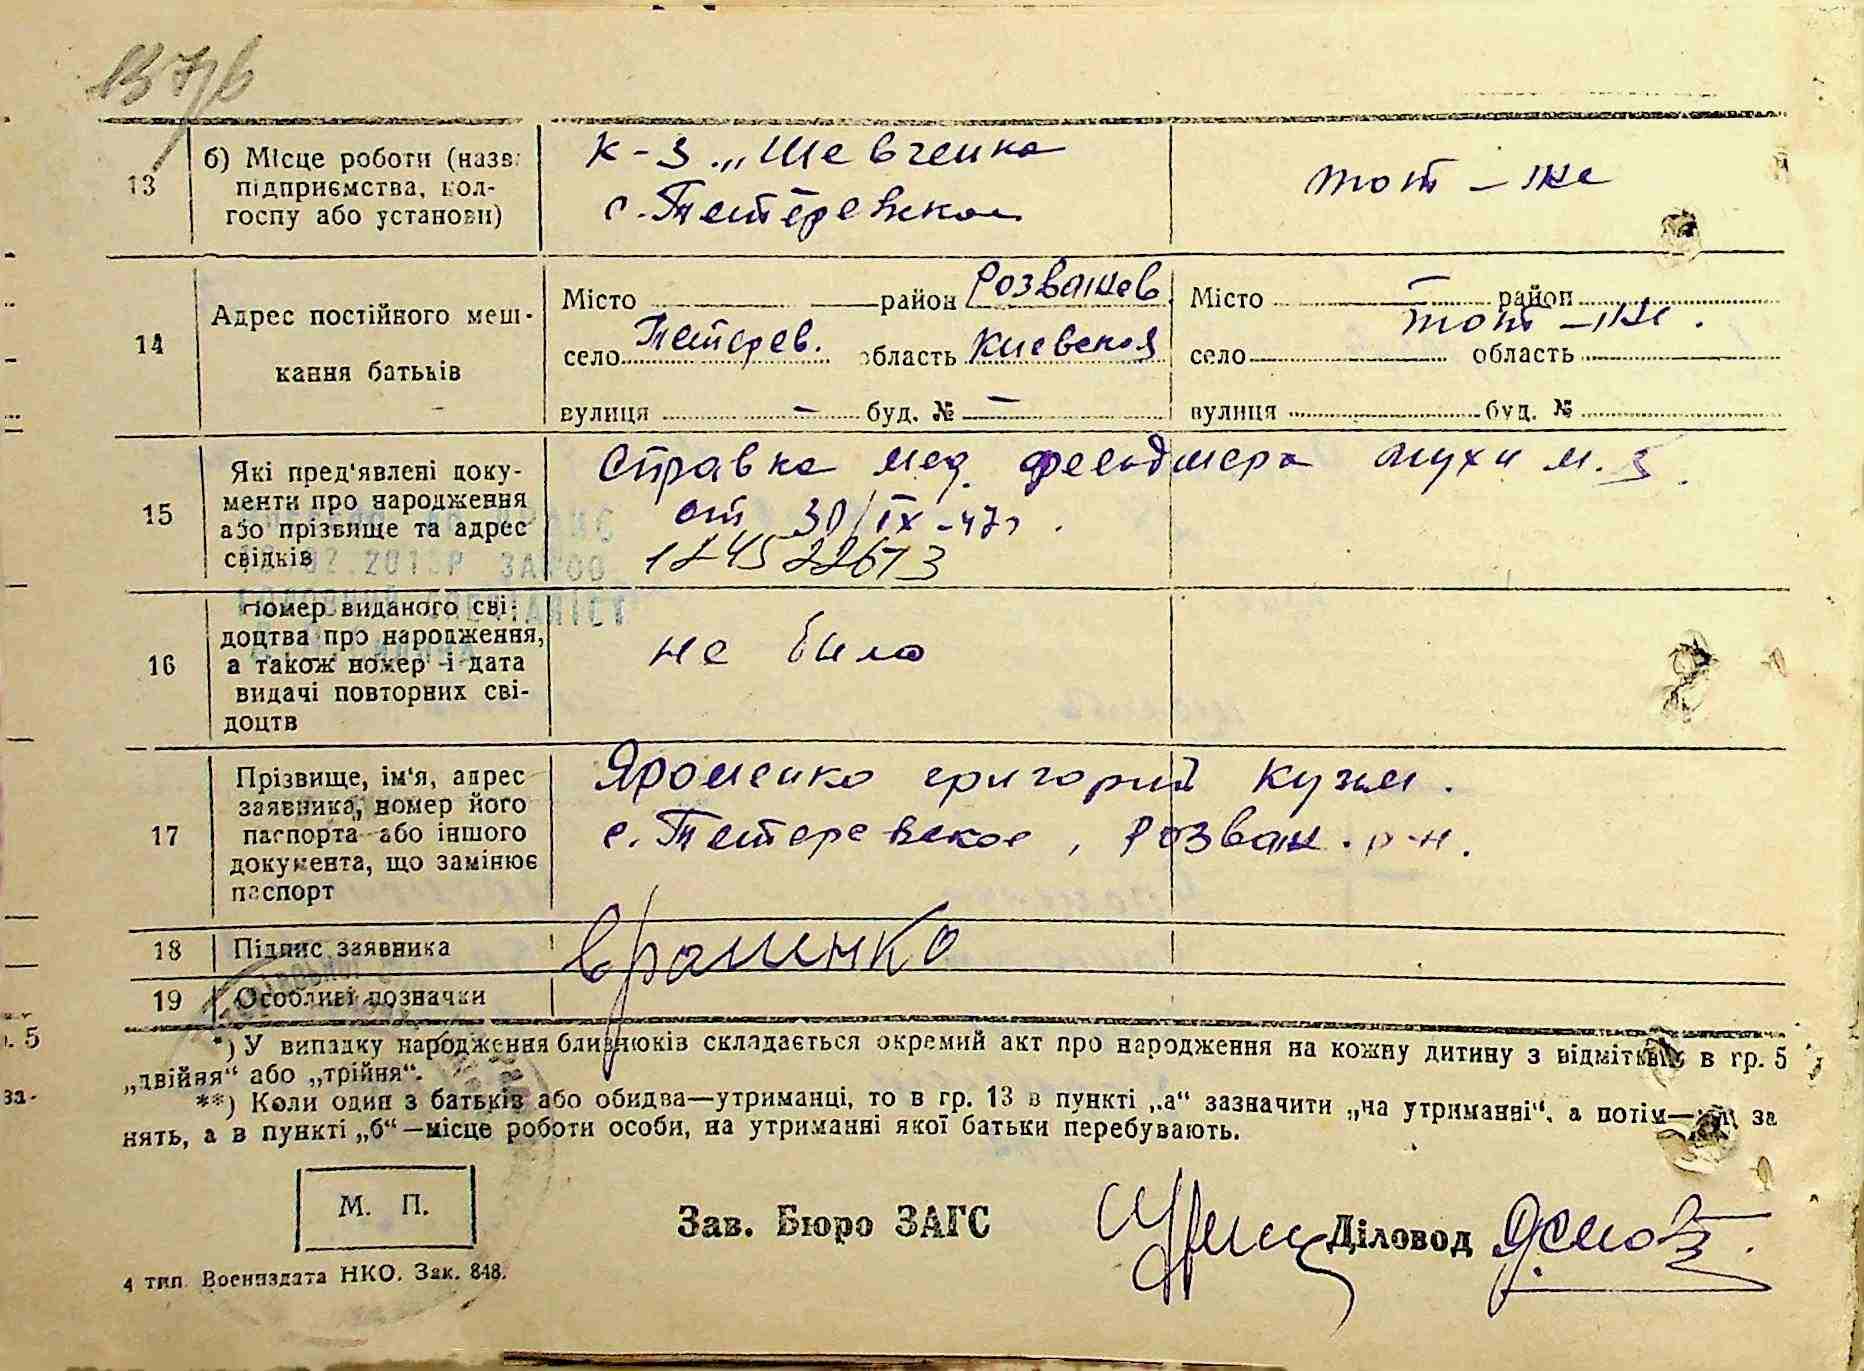 13 б) Місце роботи (назв: к-з „Шевченка тот-же
підприємства, кол- с. Тетеревское
госпу або установи)
14 Адрес постійного меш-
кання батьків
Місто район Розважев Місто район
село Тетерев. область Киевская тот-же.
село область
вулиця - буд. № - вулиця буд. №
15 Які пред'явлені доку- Справка мед. фельдшера Мухи М.
менти про народження от 30/IX-47г.
або прізвище та адрес
свідків 1245 22673
16 Номер виданого сві- не было
доцтва про народження,
а також номер і дата
видачі повторних сві-
доцтв
17 Прізвище, ім'я, адрес Яроменко Григорий Кузьм.
заявника, номер його с. Тетеревское, Розваж. р-н.
паспорта або іншого
документа, що замінює
паспорт
18 Підпис заявника
19 Особливі позначки
*) У випадку народження близнюків складається окремий акт про народження на кожну дитину з відміткою в гр. 5
„двійня“ або „трійня“.
**) Коли один з батьків або обидва—утриманці, то в гр. 13 в пункті „а“ зазначити „на утриманні“, а потім— за
нять, а в пункті „б“—місце роботи особи, на утриманні якої батьки перебувають.
М. П.
Зав. Бюро ЗАГС Діловод
4 тип. Воениздата НКО. Зак. 848.